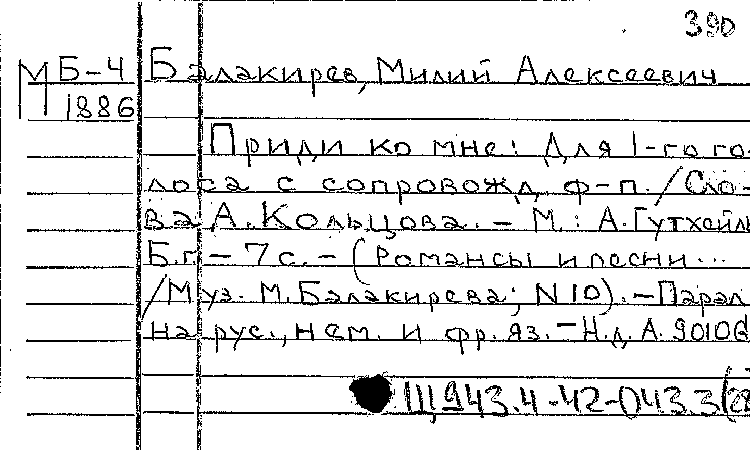 390
М Б-4 Балакирев, Милий Алексеевич
1886
Приди ко мне: Для 1-го го-
лоса с сопровожд ф-п. / Сло-
ва А. Кольцова. - М.: А. Гутхейль
Б.г. - 7 с. - (Романсы и песни ...
/ Муз. М. Балакирева; N 10). - Парал
на рус., нем. и фр. яз. - Н.д. А. 9010б
Щ943.4-42-043.3(28